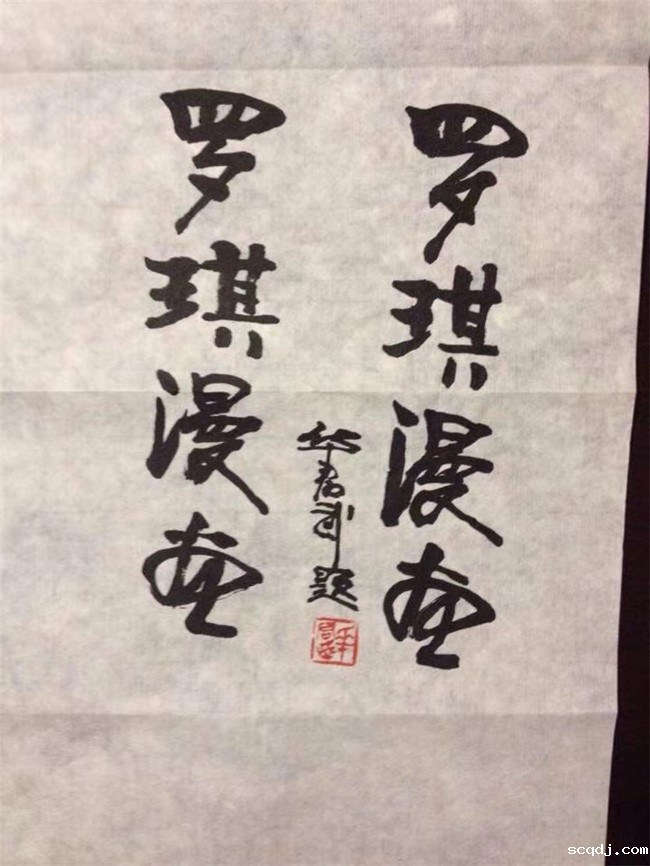 罗琪漫画
华君武题
罗琪漫画
scqdj.com